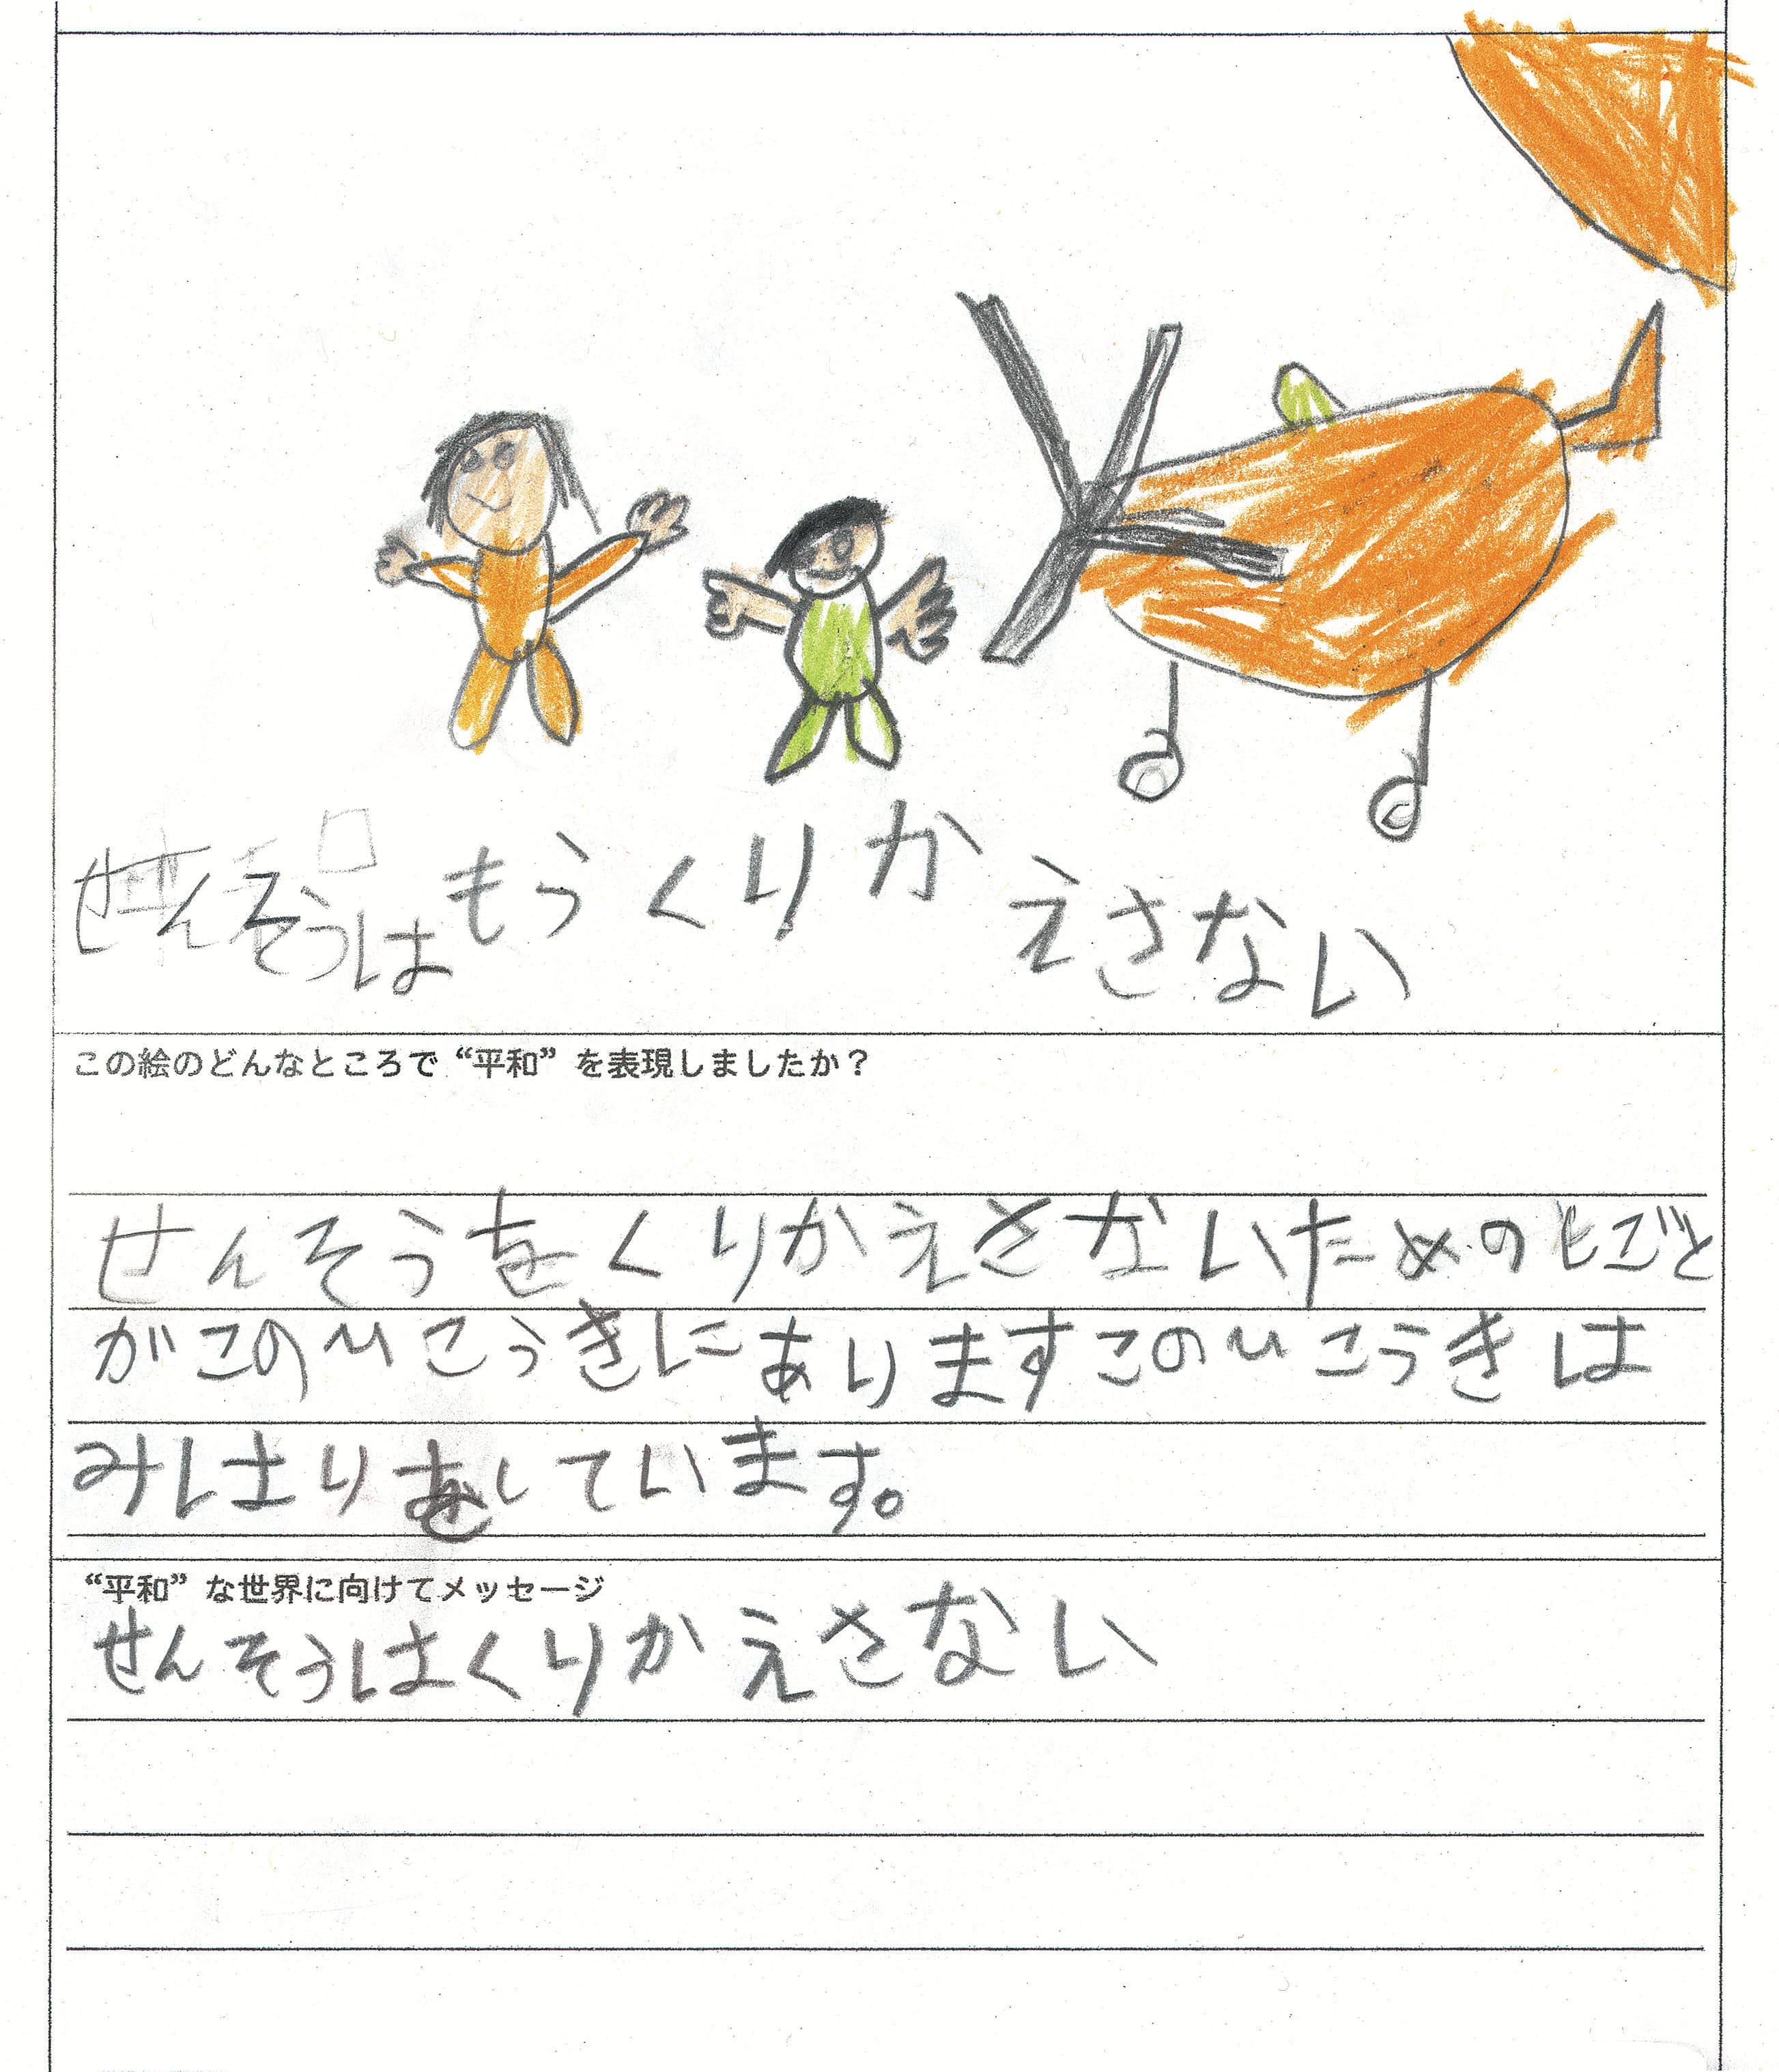 せんそうはもうくりかえさない
この絵のどんなところで“平和”を表現しましたか？
せんそうをくりかえさないための
がこのひこうきにありますこのひこうきは
みはりをしています。
“平和”な世界に向けてメッセージ
せんそうはくりかえさない